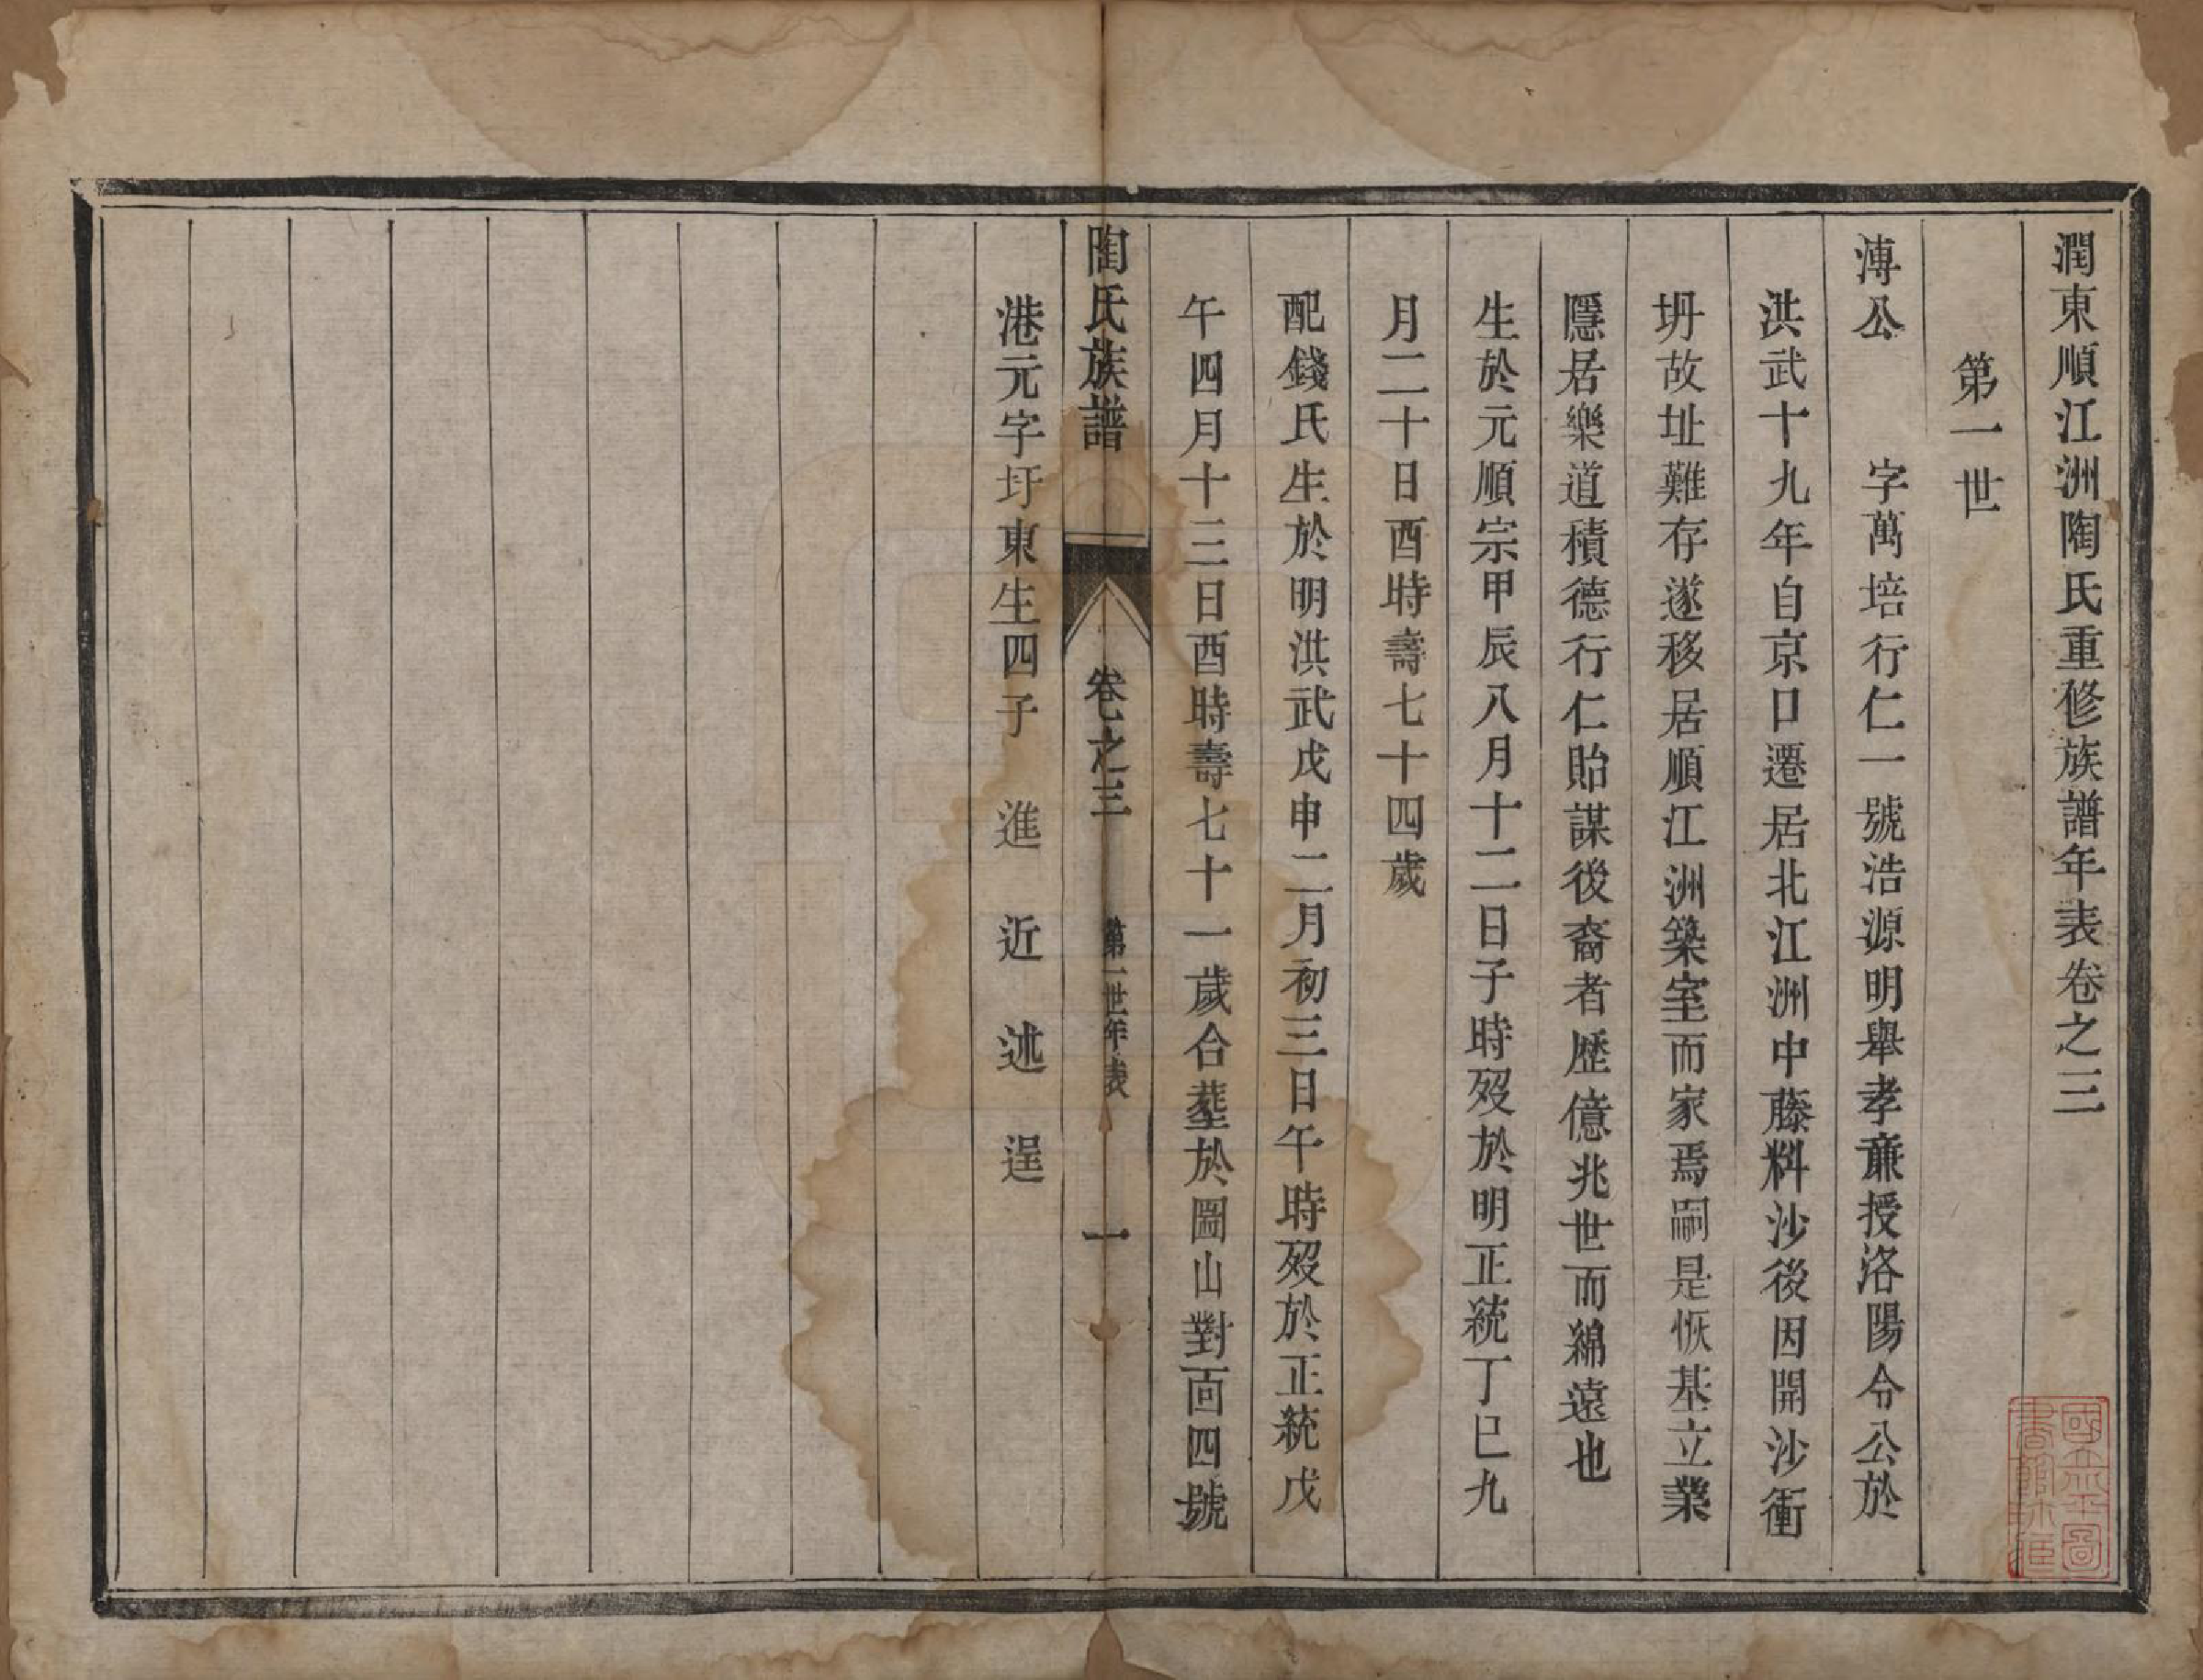 潤東順江洲陶氏重修族譜年表卷之三
第一世
溥公　字萬培行仁一號浩源明舉孝亷授洛陽令公於
洪武十九年自京口遷居北江洲中藤料沙後因開沙衝
坍故址難存遂移居順江洲築室而家焉嗣是恢基立業
隱居樂道積德行仁貽謀後裔者歷億兆世而綿遠也
生於元順宗甲辰八月十二日子時歿於明正統丁巳九
月二十日酉時壽七十四歲
配錢氏生於明洪武戊申二月初三日午時歿於正統戊
午四月十三日酉時壽七十一歲合塟於圌山對面四號
陶氏族譜　卷之三　第一世年表　一
港元字圩東生四子　進　近　述　逞
國立北平圖
書館收藏